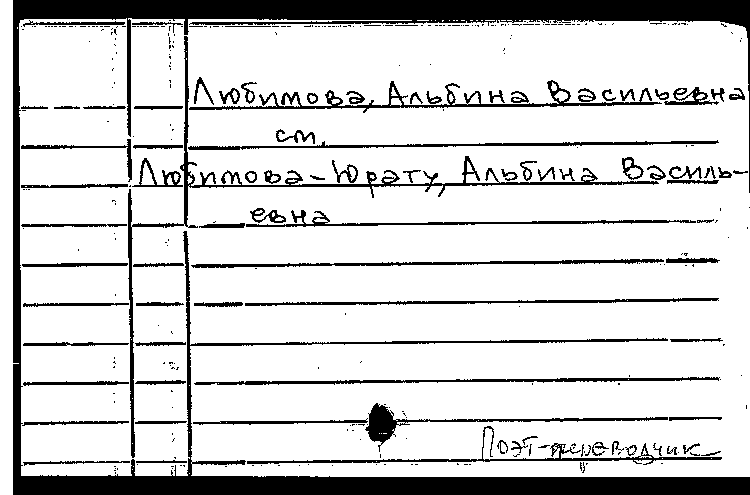 Любимова, Альбина Васильевна
см.
Любимова-Юрату, Альбина Василь-
евна
Поэт-переводчик